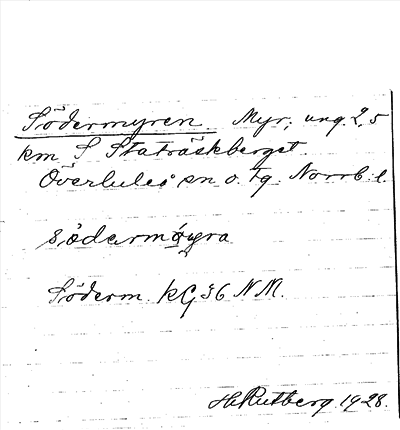 Södermyren. Myr, ung. 2,5
km S Staträskberget.
Överluleå sn o. tg. Norrb. l.
Söderm. kG 36 NM.
H. Rutberg 1928.